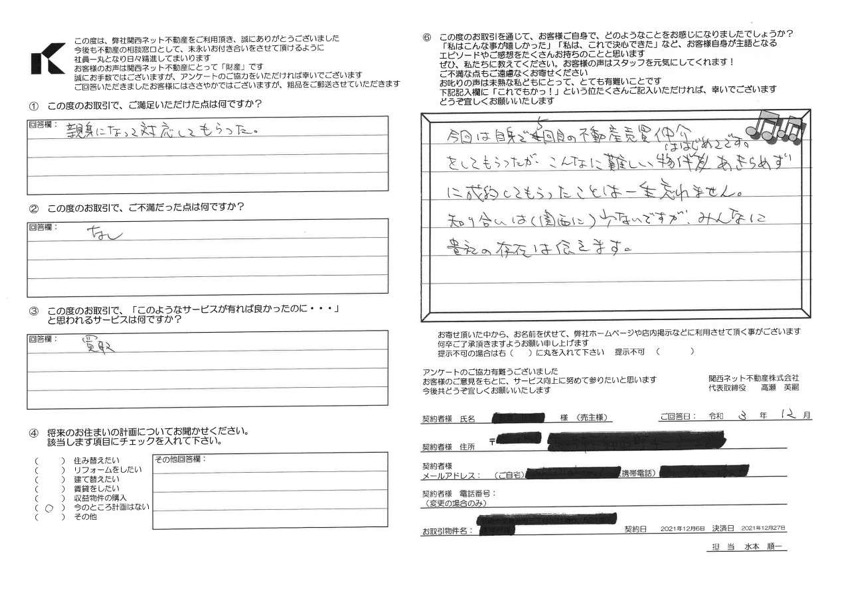 この度は、弊社関西ネット不動産をご利用頂き、誠にありがとうございました
今後も不動産の相談窓口として、末永いお付き合いをさせて頂けるように
社員一丸となり日々精進してまいります
お客様のお声は関西ネット不動産にとって「財産」です
誠にお手数ではございますが、アンケートのご協力をいただければ幸いでございます
ご回答いただきましたお客様にはささやかではございますが、粗品をご郵送させていただきます
① この度のお取引で、ご満足いただけた点は何ですか？
回答欄：
親身になって対応してもらった。
② この度のお取引で、ご不満だった点は何ですか？
回答欄：
なし
③ この度のお取引で、「このようなサービスが有れば良かったのに・・・」
と思われるサービスは何ですか？
回答欄：
買取
④ 将来のお住まいの計画についてお聞かせください。
該当します項目にチェックを入れて下さい。
（　　）住み替えたい
（　　）リフォームをしたい
（　　）建て替えたい
（　　）賃貸をしたい
（　　）収益物件の購入
（ ○ ）今のところ計画はない
（　　）その他
その他回答欄：
⑥ この度のお取引を通じて、お客様ご自身で、どのようなことをお感じになりましたでしょうか？
「私はこんな事が嬉しかった」「私は、これで決心できた」など、お客様自身が主語となる
エピソードやご感想をたくさんお持ちのことと思います
ぜひ、私たちに教えてください。お客様の声はスタッフを元気にしてくれます！
ご不満な点もご遠慮なくお寄せください
お叱りの声は未熟な私どもにとって、とても有難いことです
下記記入欄に「これでもか！」という位たくさんご記入いただければ、幸いでございます
どうぞ宜しくお願いいたします
今日は自身で5回目の不動産売買仲介
をしてもらったが こんなに難しい物件ははじめてです。あきらめず
に成約してもらったことは一生忘れません。
知り合いは（関西に）少ないですが、みんなに
貴社の存在は伝えます。
お寄せ頂いた中から、お名前を伏せて、弊社ホームページや店内掲示などに利用させて頂く事がございます
何卒ご了承頂きますようお願い申し上げます
提示不可の場合は右（　　）に丸を入れて下さい　提示不可　（　　　　）
アンケートのご協力有難うございました
お客様のご意見をもとに、サービス向上に努めて参りたいと思います
今後共どうぞ宜しくお願いいたします
関西ネット不動産株式会社
代表取締役　高瀬　英嗣
契約者様　氏名　様（売主様）　ご回答日：　令和　3　年　12　月
契約者様　住所　〒
契約者様
メールアドレス：　（ご自宅）　携帯電話）
契約者様　電話番号：
（変更の場合のみ）
お取引物件名：　契約日　2021年12月6日　決済日　2021年12月27日
担　当　水本　順一